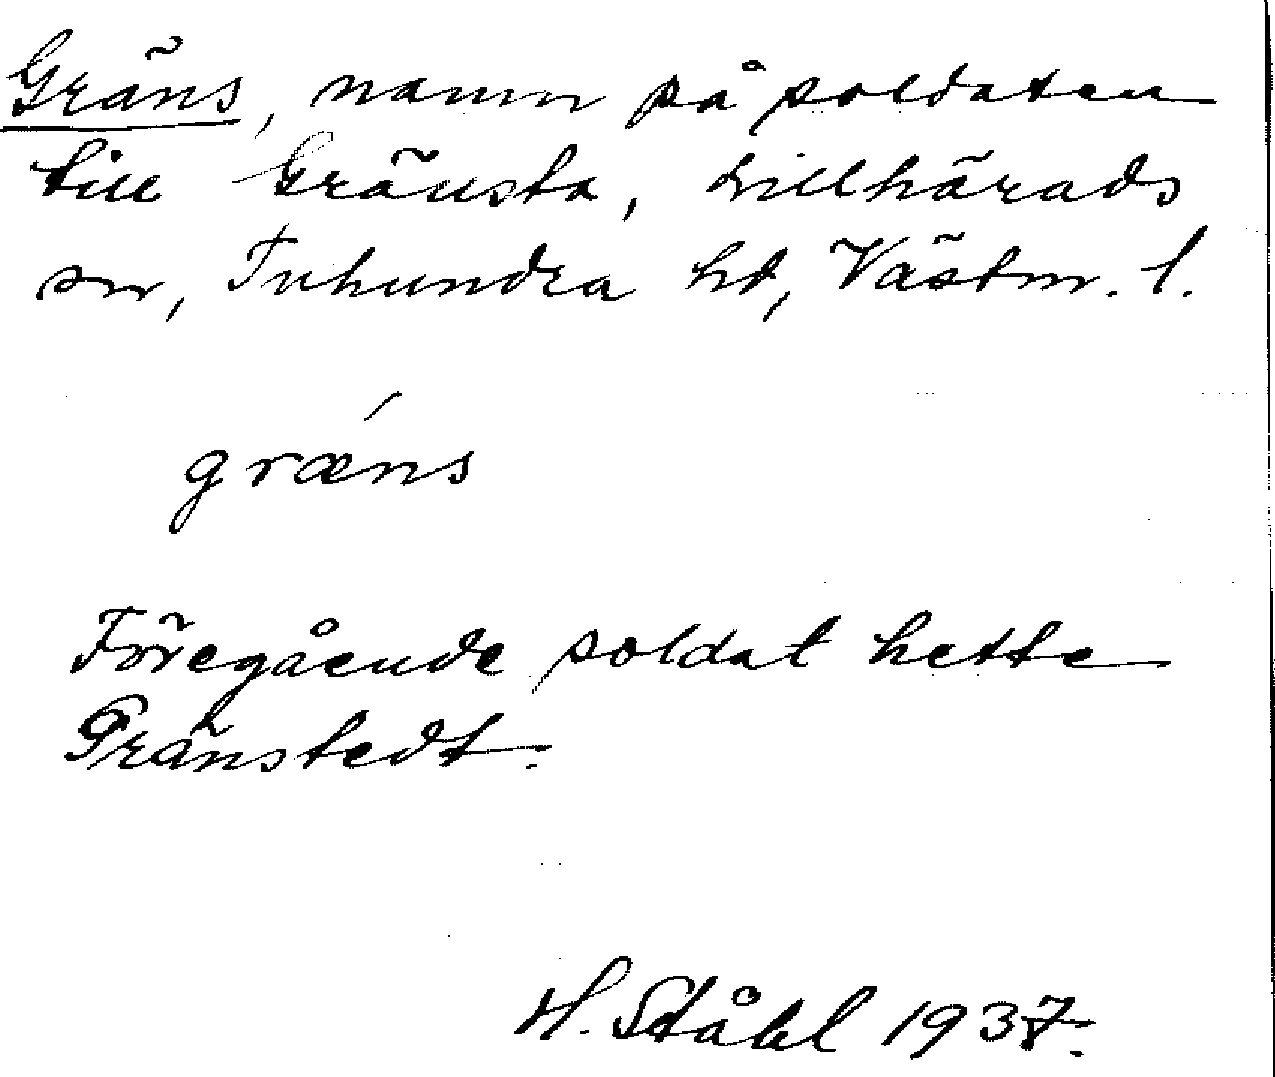 Gräns, namn på soldaten
till Gränsta, Lillhärads
sn, Tuhundra hd, Västm. l.
græ´ns
Föregående soldat hette
Pränstedt.
H. Ståhl 1937.